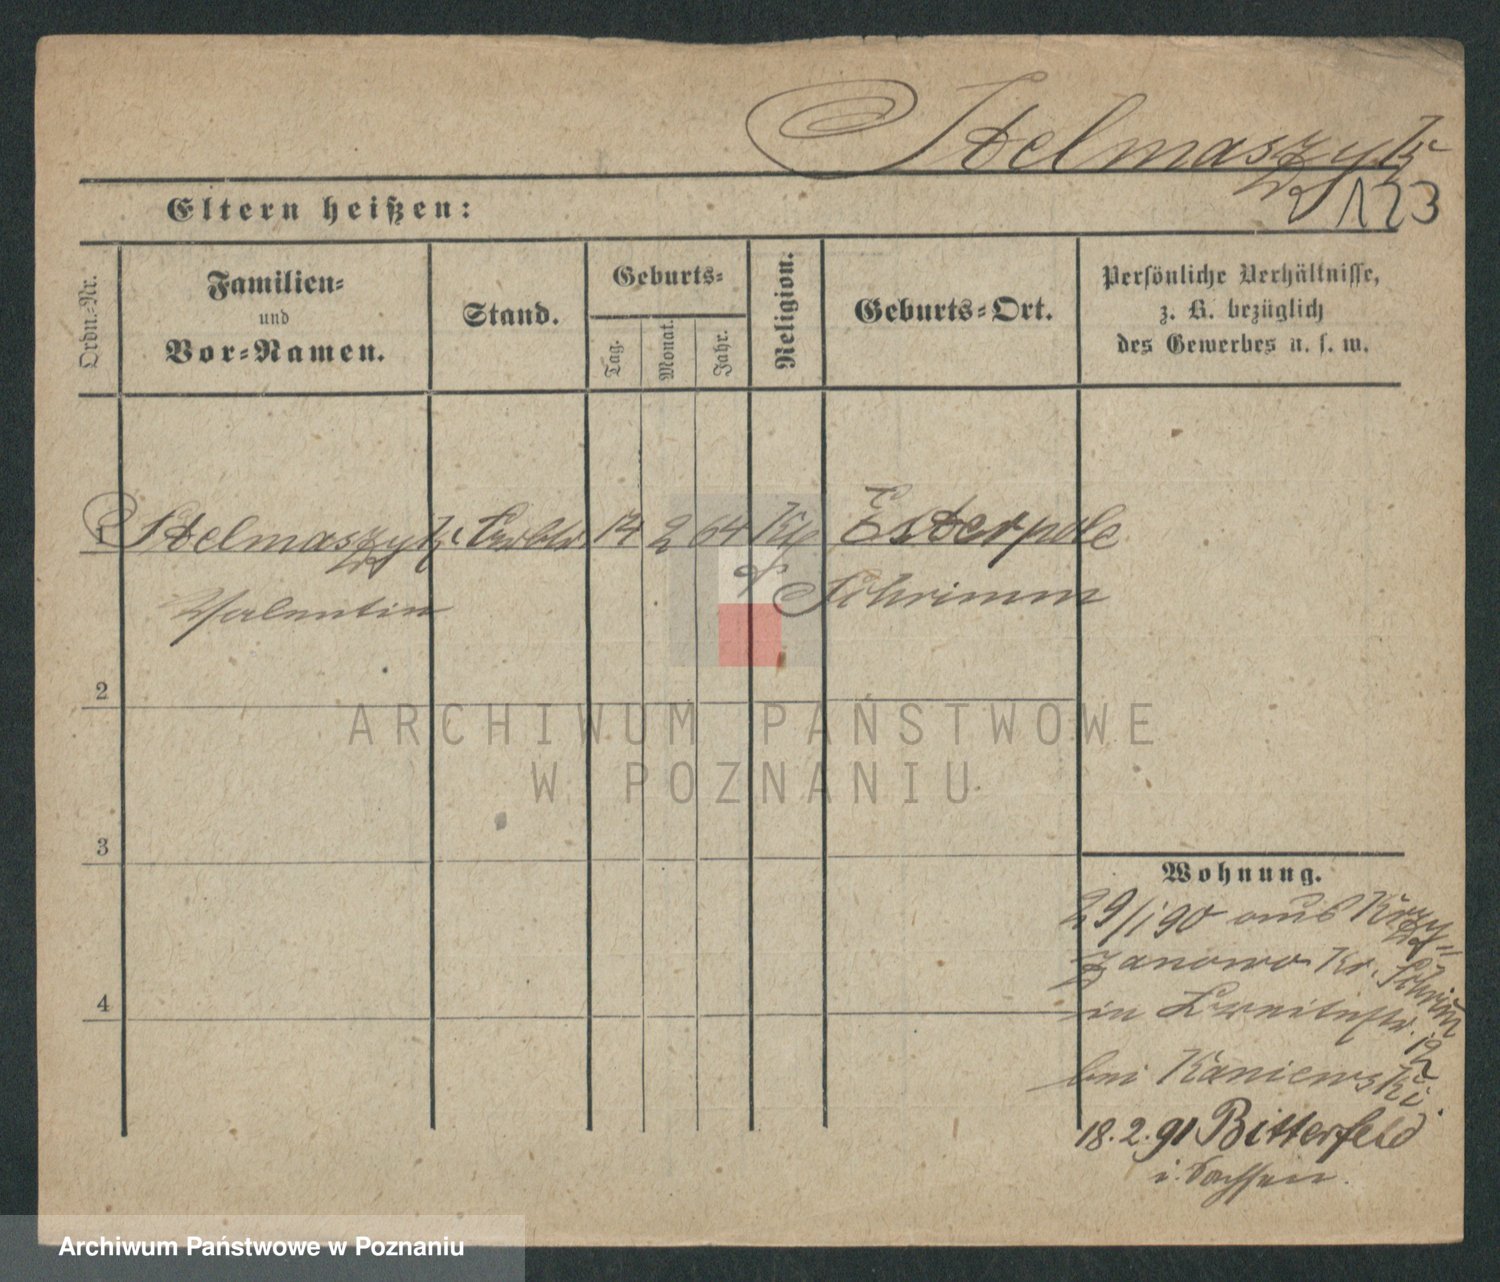 Stelmaszyk
123
Eltern heißen:
Ordn.-Nr.
Familien-
und
Vor-Namen.
Stand.
Geburts-
Tag.
Monat.
Jahr.
Religion.
Geburts-Ort.
Persönliche Verhältnisse,
z. B. bezüglich
des Gewerbes u. s. w.
1 Stelmaszyk 14 2 64 Kth Esterpole
Valentin
Schrimm
2
3
4
Wohnung.
29/1 90 aus Krzy-
zanowo Kr. Schrimm
in Breitestr. 12
bei Kaniewski.
18.2.91 Bitterfeld
i. Sachsen.
ARCHIWUM PAŃSTWOWE
W POZNANIU
Archiwum Państwowe w Poznaniu